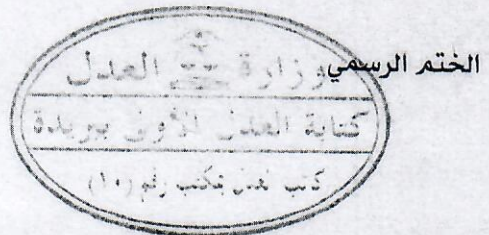 الختم الرسمي
وزارة العدل
كتابة العدل الأولى ببريدة
كاتب العدل بمكتب رقم (١٠)